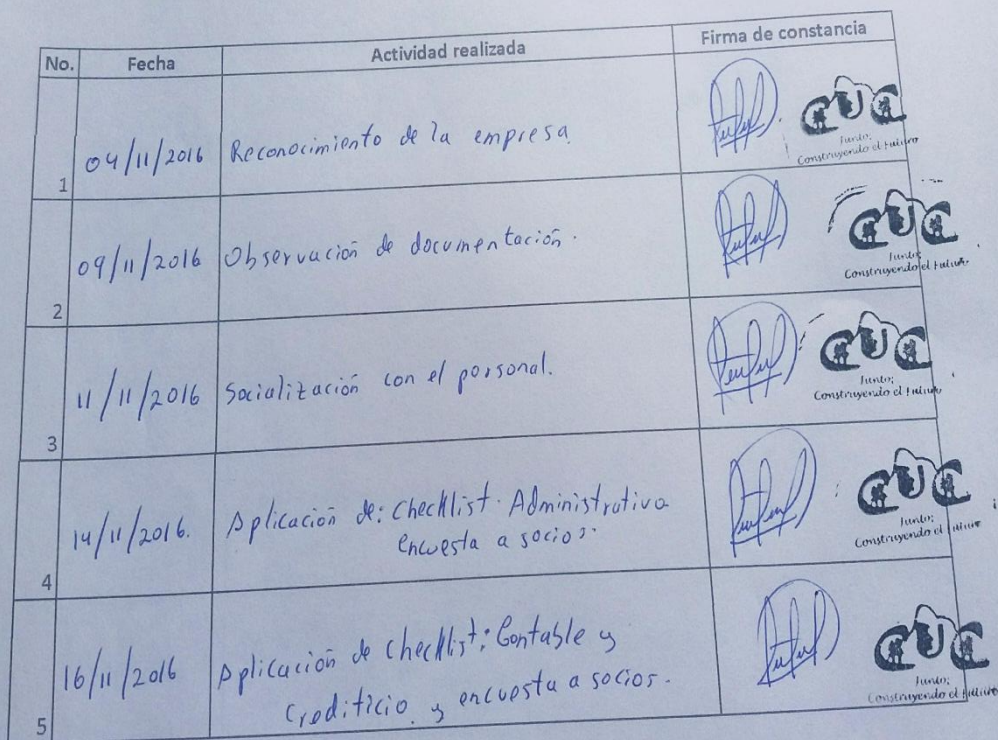 No. Fecha Actividad realizada Firma de constancia
1 04/11/2016 Reconocimiento de la empresa.
CUC
Juntos
Construyendo el Futuro
2 09/11/2016 Observación de documentación.
CUC
Juntos
Construyendo el Futuro
3 11/11/2016 Socialización con el personal.
CUC
Juntos
Construyendo el Futuro
4 14/11/2016. Aplicación de: Checklist Administrativa
encuesta a socios.
CUC
Juntos
Construyendo el Futuro
5 16/11/2016 Aplicación de Checklist: Contable y
Crediticio y encuesta a socios.
CUC
Juntos
Construyendo el Futuro